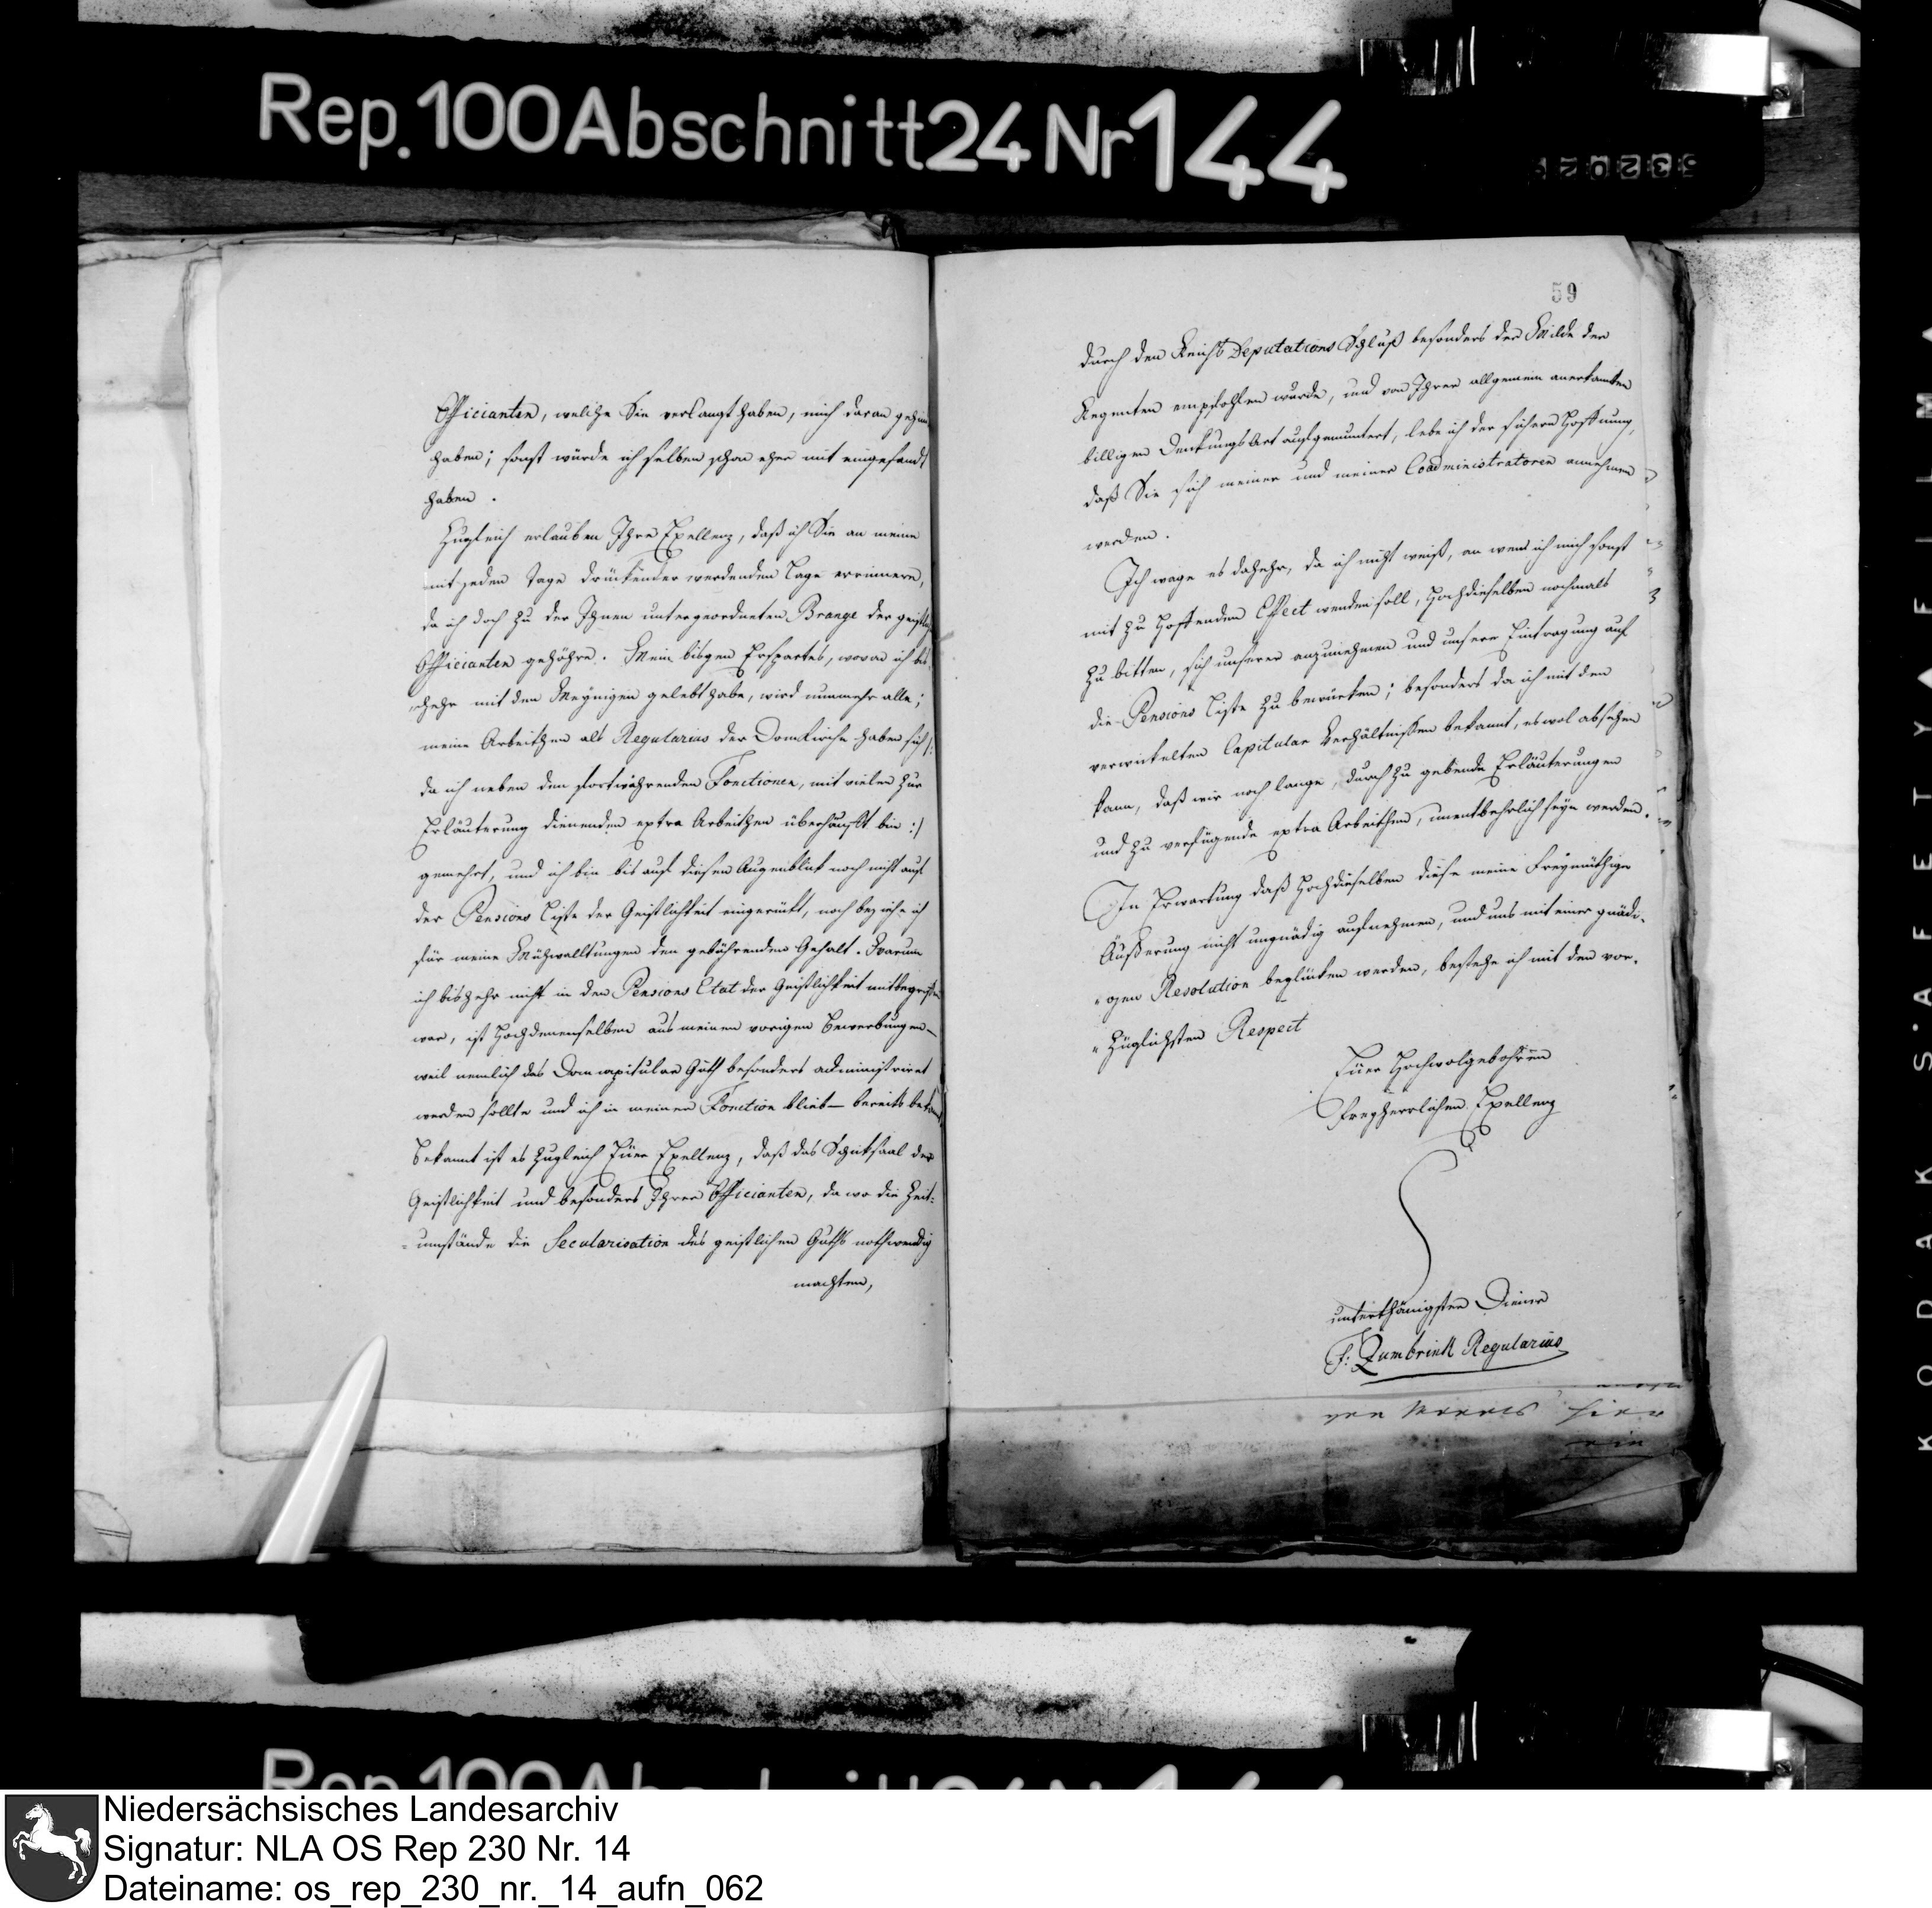 Rep. 100 Abschnitt 24 Nr 144
59
Officianten, welche Sie verlangt haben, mich daran
haben; sonst würde ich selben schon eher mit eingesandt
haben.
Zugleich erlauben Ihre Exellenz, daß ich Sie an meine
mit jeden Tage drückender werdenden Lage errinnere,
da ich doch zu der Ihnen untergeordneten Brange der
Officianten gehöhre. Mein bisgen Erspartes, wovon ich bis
hehr mit den Meynigen gelebt habe, wird nunmehr alle;
meine Arbeithen als Regularius der Domkirche haben sich /:
da ich neben den fortwährenden Fonctionen, mit vielen zur
Erläuterung dienenden extra Arbeithen überhäuft bin :/
gemehrt, und ich bin bis auf diesen Augenblick noch nicht auf
der Pensions Liste der Geistlichkeit eingerückt, noch beziehe ich
für meine Mühwalltungen den gebührenden Gehalt. Warum
ich biszhehr nicht in den Pensions Etat der Geistlichkeit mitbegriffen
war, ist Hochdenenselben aus meinen vorigen Bewerbungen –
weil nemlich das Domcapitular Guth besonders administriret
werden sollte und ich in meiner Fonction blieb – bereits bekannt
Bekannt ist es zugleich Euer Exellenz, daß das Schicksaal der
Geistlichkeit und besonders Ihrer Officianten, da wo die Zeit-
=umstände die Secularisation des geistlichen Guths nothwendig
machten,
durch den Reichs Deputations Schluß besonders der Milde der
Regenten empfohlen wurde, und von Ihrer allgemein anerkanten
billigen DenkungsArt aufgemuntert, lebe ich der sichern Hoffnung,
daß Sie sich meiner und meiner Coadministratoren annehmen
werden.
Ich wage es dahehr, da ich nicht weiß, an wen ich mich sonst
mit zu hoffenden Effect wenden soll, Hochdieselben nochmals
zu bitten, sich unserer anzunehmen und unsere Eintragung auf
die Pensions Liste zu bewürken; besonders da ich mit den
verwickelten Capitular Verhältnißen bekannt, es wol absehen
kann, daß wir noch lange, durch zu gebende Erläuterungen
und zu verfügende extra Arbeithen, unentbehrlich seyn werden.
In Erwartung daß Hochdieselben diese meine Freymüthige
Äußerung nicht ungnädig aufnehmen, und uns mit einer gnädi-
"gen Resolution beglücken werden, bestehe ich mit den vor-
"züglichsten Respect
Euer Hochwolgebohren
Freyherrlichen Exellenz
unterthänigster Diener
F: Zumbrink Regularius
hier
ein
KODAK S·A·F·E·T·Y FILM
Niedersächsisches Landesarchiv
Signatur: NLA OS Rep 230 Nr. 14
Dateiname: os_rep_230_nr._14_aufn_062